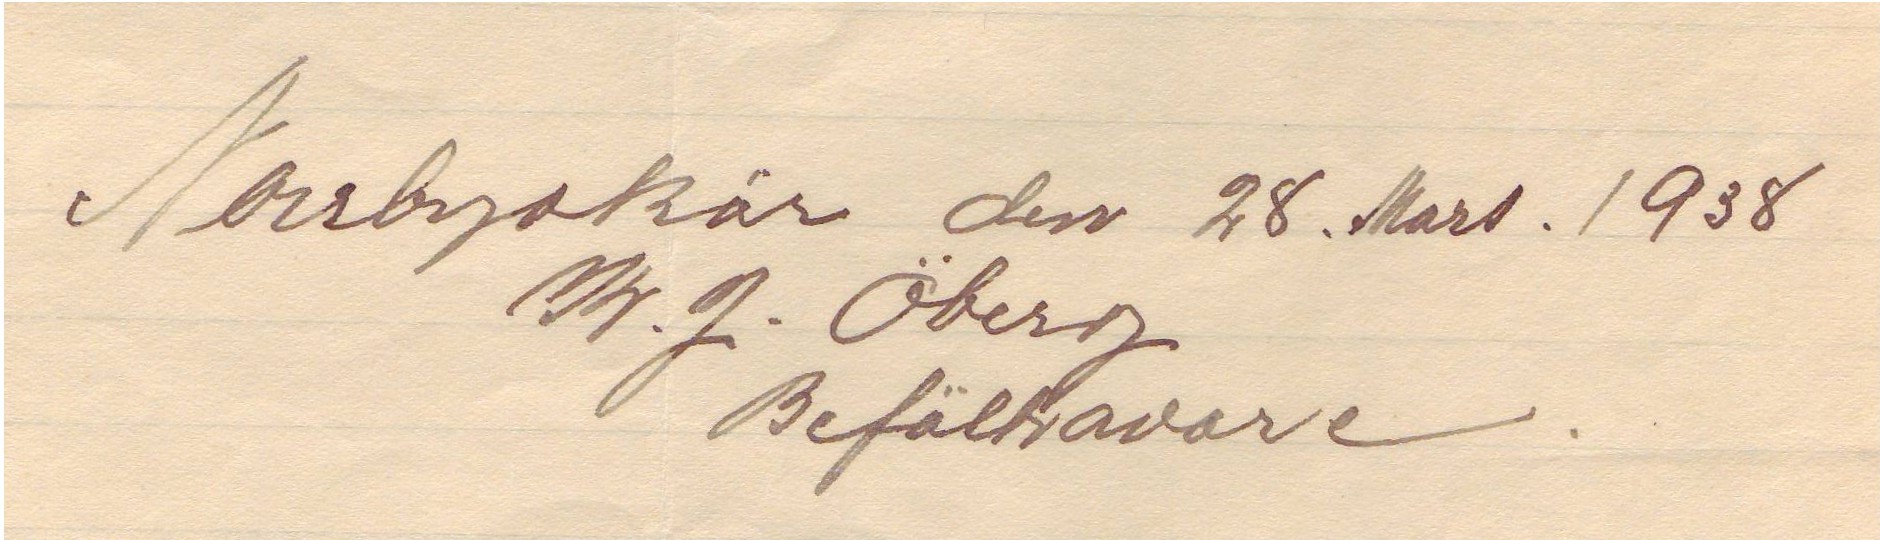 Norrbyskär den 28. Mars. 1938
J. Öberg
Befälhavare.